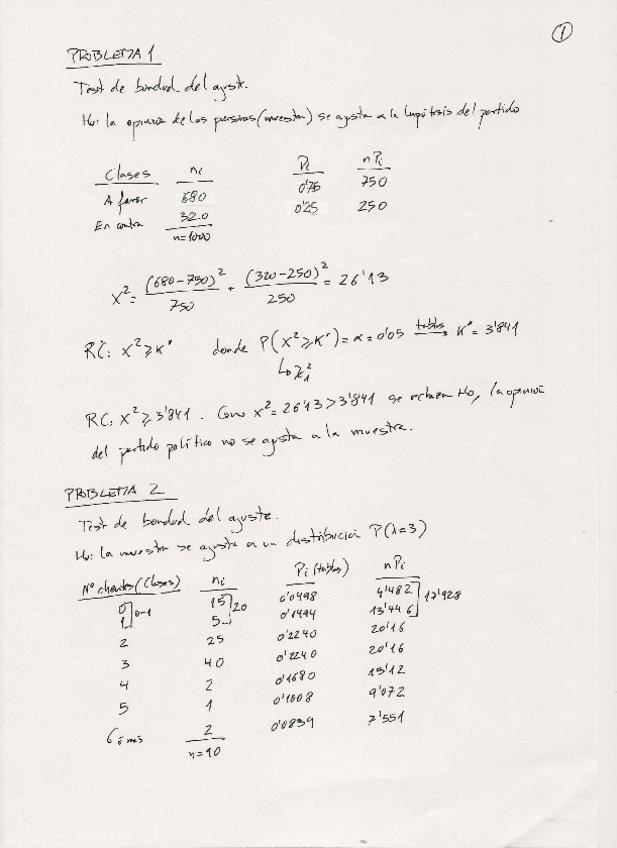 1
PROBLEMA 1
Test de bondad del ajuste.
Ho: la opinión de las personas (muestra) se ajusta a la hipótesis del partido
Clases ni Pi nPi
A favor 680 0'75 750
En contra 320 0'25 250
n=1000
X² = (680-750)²/750 + (320-250)²/250 = 26'13
RC: X² ≥ K* donde P(X² ≥ K*) = α = 0'05 tablas→ K* = 3'841
↳ χ²₁
RC: X² ≥ 3'841. Como X² = 26'13 > 3'841 se rechaza Ho, la opinión
del partido político no se ajusta a la muestra.
PROBLEMA 2
Test de bondad del ajuste.
Ho: la muestra se ajusta a un distribución P(λ=3)
Nº clientes (Clases) ni Pi (tablas) nPi
0 ] 0-1 15 ] 20 0'0498 4'482 ] 17'928
1 5 0'1494 13'446
2 25 0'2240 20'16
3 40 0'2240 20'16
4 2 0'1680 15'12
5 1 0'1008 9'072
6 ó más 2 0'0839 7'551
n=90